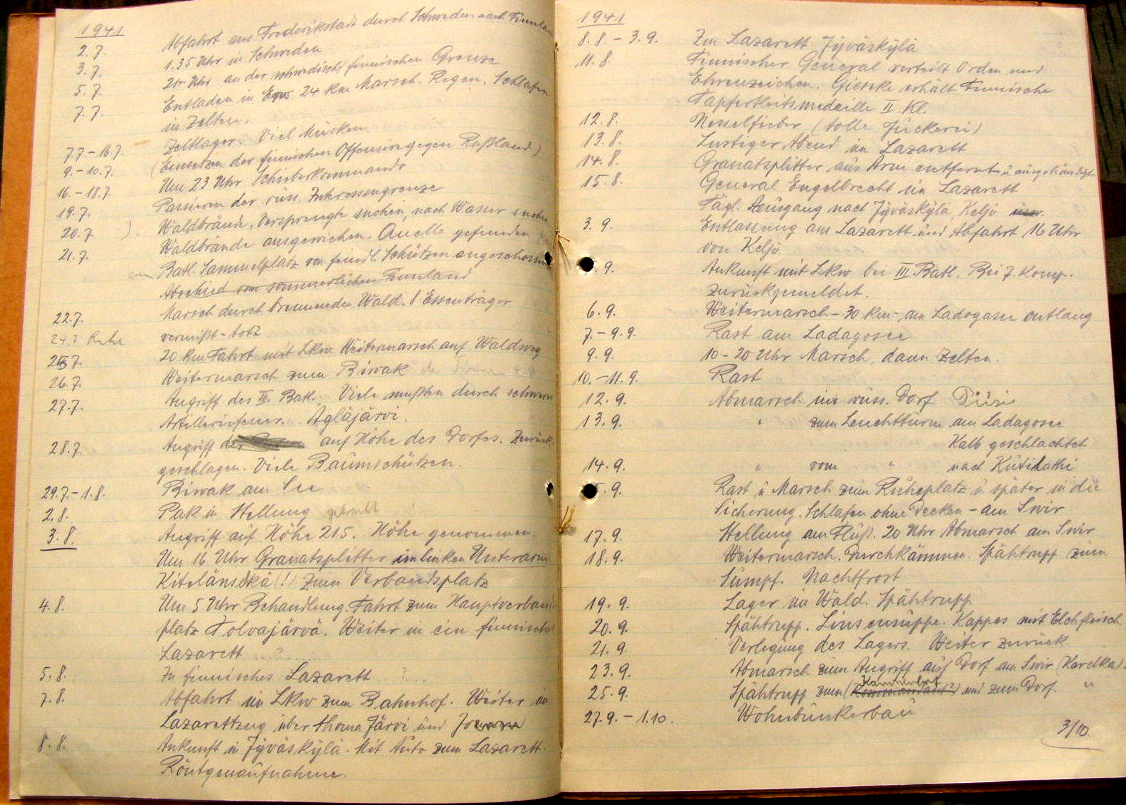 1941
2.7. Abfahrt aus Frederikstadt durch Schweden nach Finnland
3.7. 1.35 Uhr in Schweden
5.7. 20 Uhr an der schwedisch finnischen Grenze
7.7. Entladen in 24 Km Marsch. Regen. Schlafen
in Zelten.
7.7.-16.7. Zeltlager. Viel Mücken
9.-10.7. (Einsetzen der finnischen Offensive gegen Rußland)
16.-18.7. Um 23 Uhr
19.7. Passieren der russ.
20.7. Waldbrände, Versprengte suchen, nach Wasser suchen
21.7. Waldbrände ausgewichen. Quelle gefunden
Batl. Sammelplatz von feindl. Schützen angeschossen
Abschied vom sommerlichen Finnland
22.7. Marsch durch brennenden Wald. 6 Essenträger
24.7 Ruhe vermißt - tot
25.7. 20 Km Fahrt mit Lkw Weitermarsch auf Waldweg
26.7. Weitermarsch zum Biwak
27.7. Angriff des III Batl. Viele mußten durch schweres
Artilleriefeuer. Aglajärvi.
28.7. Angriff auf Höhe des Dorfes. Zurück
geschlagen. Viele Baumschützen.
29.7.-1.8. Biwak am See
2.8. Pak in Stellung gebracht
3.8. Angriff auf Höhe 215. Höhe genommen.
Um 16 Uhr Granatsplitter im linken Unterarm
Kitelänskä (!) zum Verbandsplatz
4.8. Um 5 Uhr Behandlung. Fahrt zum Hauptverband
platz Tolvajärvä. Weiter in ein finnisches
Lazarett ..?..
5.8. In finnisches Lazarett ..?
7.8. Abfahrt im LKw zum Bahnhof. Weiter im
Lazarettzug über Järvi und
8.8. Ankunft in Jÿväskÿlä. Mit Auto zum Lazarett.
Röntgenaufnahme.
1941
8.8 - 3.9. Im Lazarett Jÿväskÿlä
11.8 Finnischer General verteilt Orden und
Ehrenzeichen. Gieseke erhält Finnische
Tapferkeitsmedaille II Kl.
12.8. Nesselfieber (tolle Juckerei)
13.8. Lustiger Abend im Lazarett
14.8. Granatsplitter aus Arm entfernt u. ausgehändigt
15.8. General Engelbrecht im Lazarett
Tägl. Ausgang nach Jÿväskÿlä, Keljo usw.
3.9. Entlassung aus Lazarett und Abfahrt 16 Uhr
von Keljo.
.9. Ankunft mit Lkw bei III Batl. Bei 7. Komp.
zurückgemeldet.
6.9. Weitermarsch - 30 Km - am Ladogasee entlang
7.-9.9. Rast am Ladogasee
9.9. 10-20 Uhr Marsch, dann Zelten.
10.-11.9. Rast
12.9. Abmarsch ins russ. Dorf
13.9. " zum Leuchtturm am Ladogasee
Kalb geschlachtet
14.9. " vom " nach
5.9. Rast u Marsch zum Ruheplatz u später in die
Sicherung. Schlafen ohne Decken - am Swir
17.9. Stellung am Fluß. 20 Uhr Abmarsch am Swir
18.9. Weitermarsch. Durchkämmen. Spähtrupp zum
Sumpf. Nachtfrost
19.9. Lager im Wald. Spähtrupp
20.9. Spähtrupp. Linsensuppe. Kappes mit Elchfleisch
21.9. Verlegung des Lagers. Weiter zurück
23.9. Abmarsch zum Angriff auf Dorf am Swir (Karelka)
25.9. Spähtrupp zum und zum Dorf. "
27.9.-1.10. Wohnbunkerbau
3/10